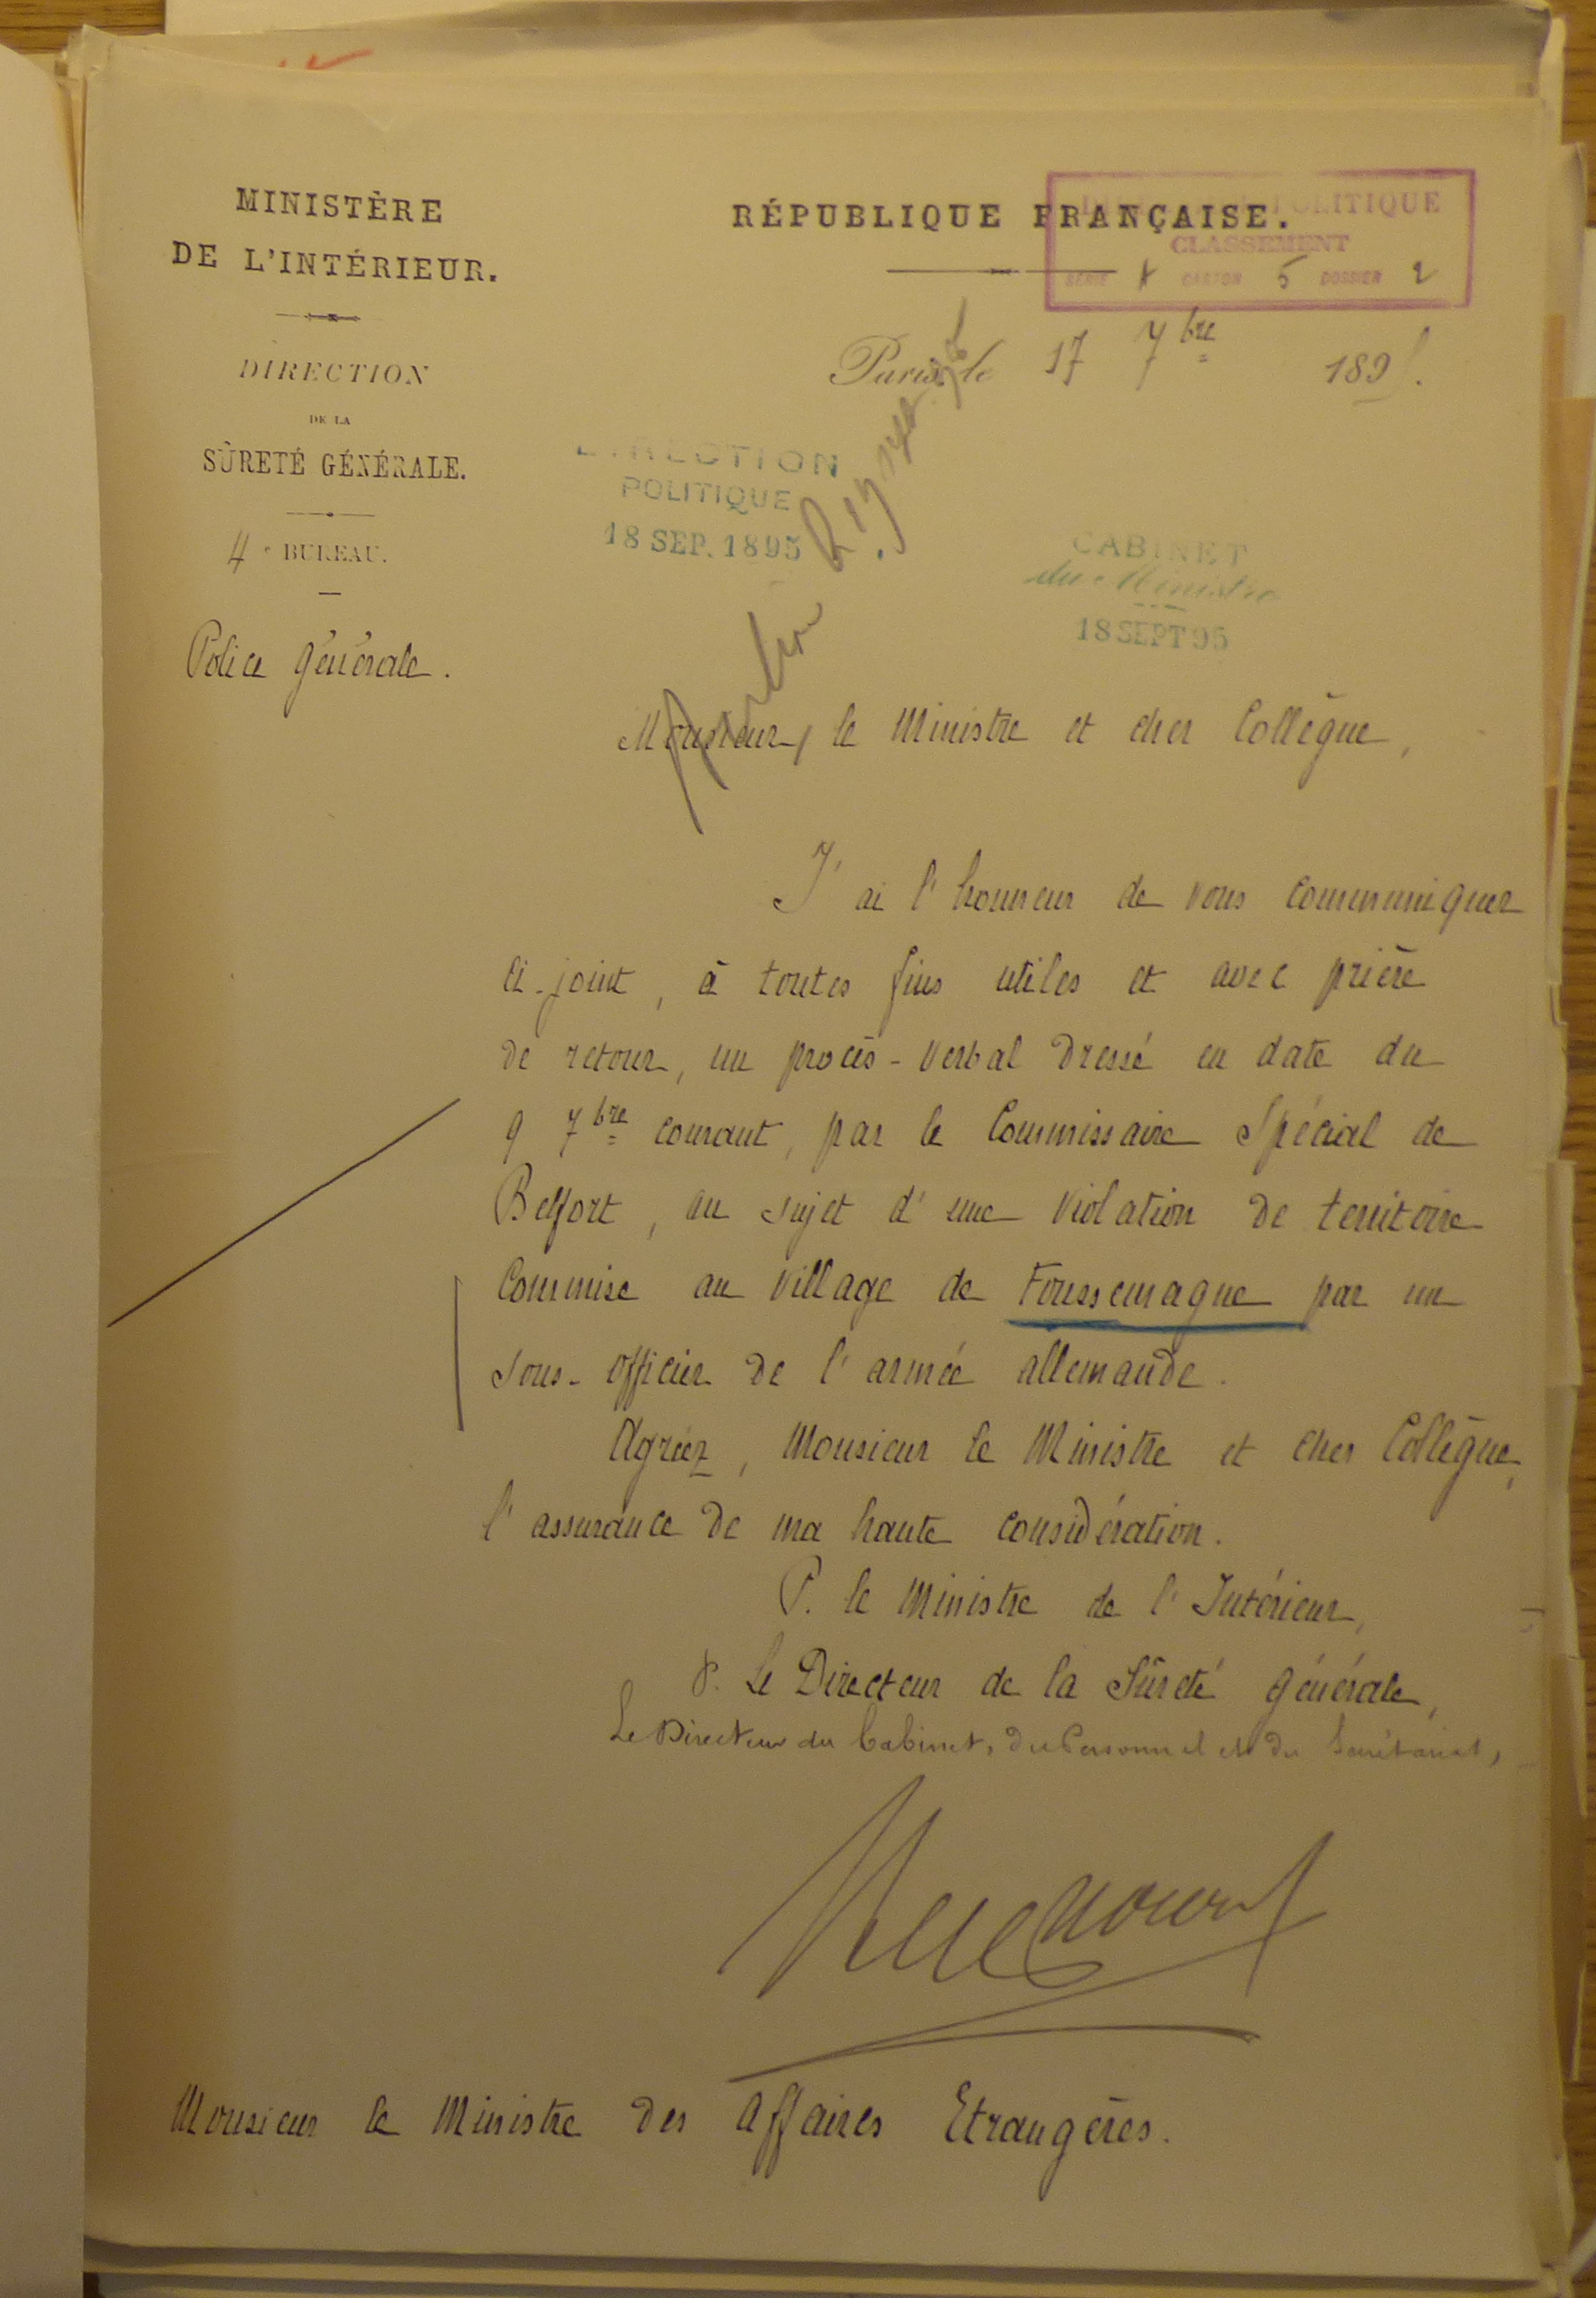 MINISTÈRE
DE L'INTÉRIEUR.
DIRECTION
DE LA
SÛRETÉ GÉNÉRALE.
4e BUREAU.
Police Générale.
RÉPUBLIQUE FRANÇAISE.
POLITIQUE
CLASSEMENT
SÉRIE A CARTON 5 DOSSIER 2
Paris, le 17 7bre 1895.
DIRECTION
POLITIQUE
18 SEP. 1895
CABINET
du Ministre
18 SEPT 95
Monsieur le Ministre et cher Collègue,
J'ai l'honneur de vous communiquer
ci-joint, à toutes fins utiles et avec prière
de retour, un procès-verbal dressé en date du
9 7bre courant, par le Commissaire Spécial de
Belfort, au sujet d'une violation de territoire
commise au village de Foussemagne par un
sous-officier de l'armée allemande.
Agréez, Monsieur le Ministre et cher Collègue,
l'assurance de ma haute considération.
P. le Ministre de l'Intérieur,
P. Le Directeur de la Sûreté générale,
Le Directeur du Cabinet, du Personnel et du Secrétariat,
Monsieur le Ministre des Affaires Etrangères.